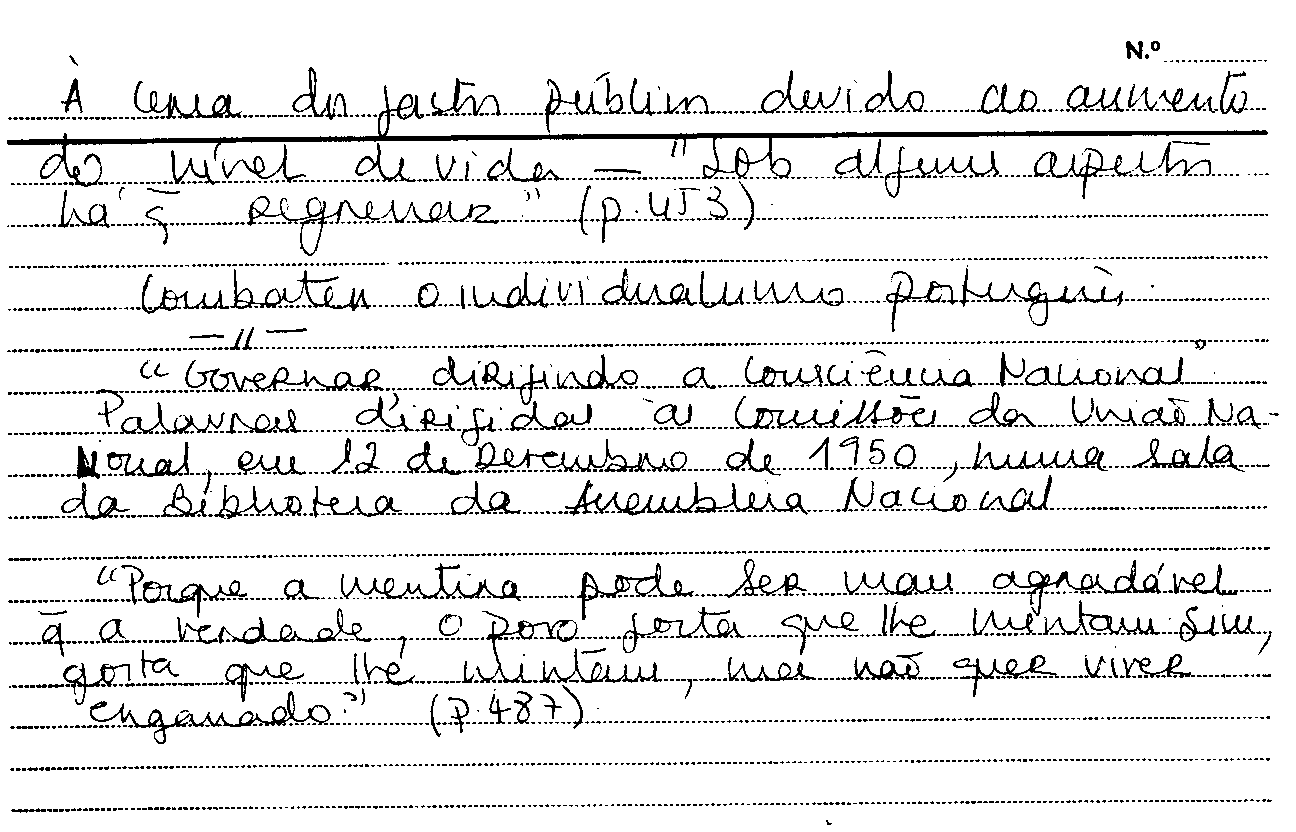 N.º
À cerca dos gastos públicos devido ao aumento
do nível de vida — "Sob alguns aspectos
há q̃ regressar" (p. 453)
Combater o individualismo português.
—//—
"Governar dirigindo a Consciência Nacional"
Palavras dirigidas às Comissões da União Na-
cional, em 12 de Dezembro de 1950, numa sala
da Biblioteca da Assembleia Nacional
"Porque a mentira pode ser mais agradável
q̃ a verdade, o povo gosta que lhe mintam sim,
gosta que lhe mintam, mas não quer viver
enganado." (p. 487)